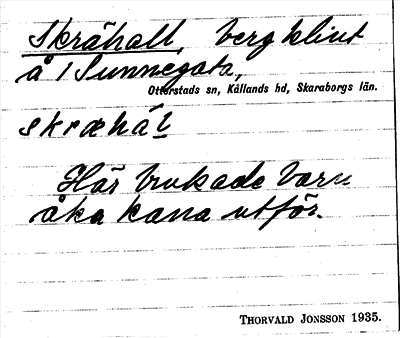 Skråhall, bergklint
å 1 Sunnegata,
Otterstads sn, Kållands hd, Skaraborgs län.
skræhäl
Här brukade barn
åka kana utför.
THORVALD JONSSON 1935.